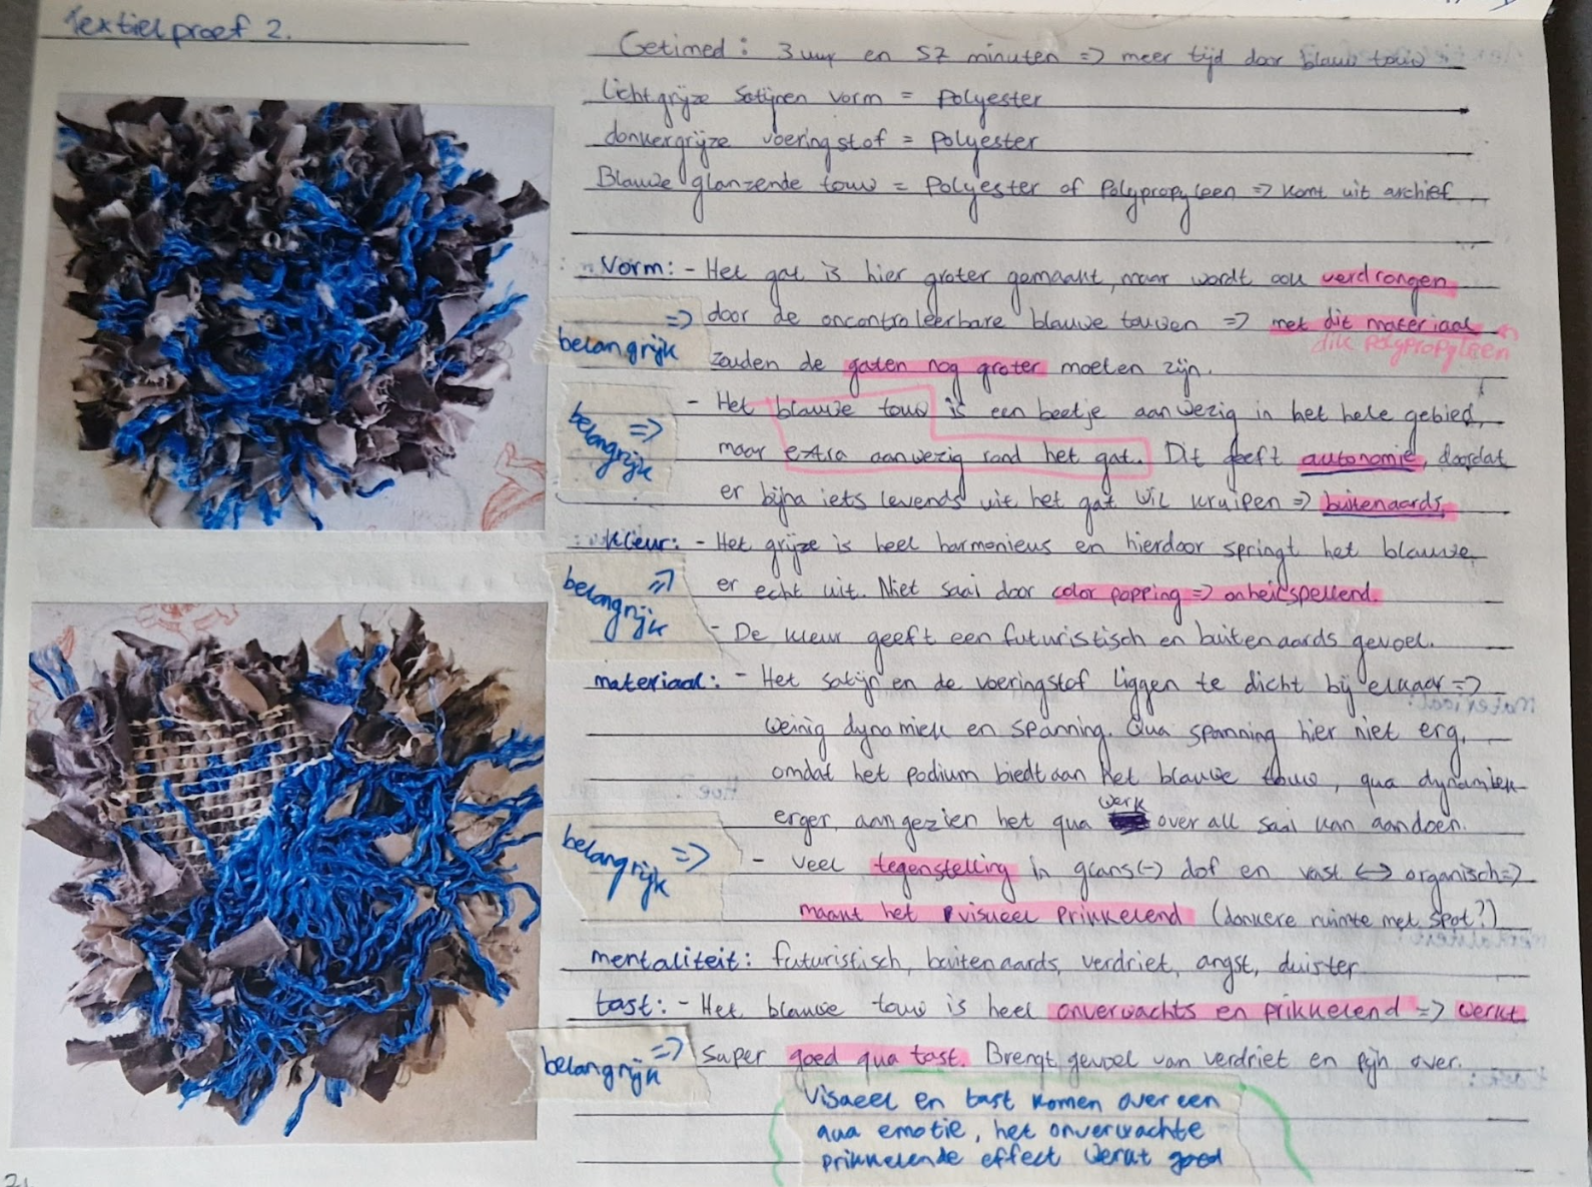 Textielproef 2.
Getimed: 3 uur en 57 minuten => meer tijd door blauw touw
Lichtgrijze Satijnen vorm = Polyester
donkergrijze voeringstof = Polyester
Blauwe glanzende touw = Polyester of Polypropyleen => komt uit archief.
Vorm: - Het gat is hier groter gemaakt, maar wordt ook verdrongen
belangrijk => door de oncontroleerbare blauwe touwen => met dit materiaal
dik polypropyleen
zouden de gaten nog groter moeten zijn.
belangrijk => - Het blauwe touw is een beetje aanwezig in het hele gebied,
maar extra aanwezig rond het gat. Dit geeft autonomie, doordat
er bijna iets levends uit het gat wil kruipen => buitenaards.
Kleur: - Het grijze is heel harmonieus en hierdoor springt het blauwe
belangrijk => er echt uit. Niet saai door color popping => onheilspellend.
- De kleur geeft een futuristisch en buitenaards gevoel.
materiaal: - Het satijn en de voeringstof liggen te dicht bij elkaar =>
weinig dynamiek en spanning. Qua spanning hier niet erg,
omdat het podium biedt aan het blauwe touw, qua dynamiek
erger, aangezien het qua werk over all saai kan aandoen.
belangrijk => - veel tegenstelling in glans <-> dof en vast <-> organisch =>
maakt het visueel prikkelend (donkere ruimte met spot?)
mentaliteit: futuristisch, buitenaards, verdriet, angst, duister
tast: - Het blauwe touw is heel onverwachts en prikkelend => werkt
belangrijk => super goed qua tast. Brengt gevoel van verdriet en pijn over.
Visueel en tast komen overeen
qua emotie, het onverwachte
prikkelende effect werkt goed